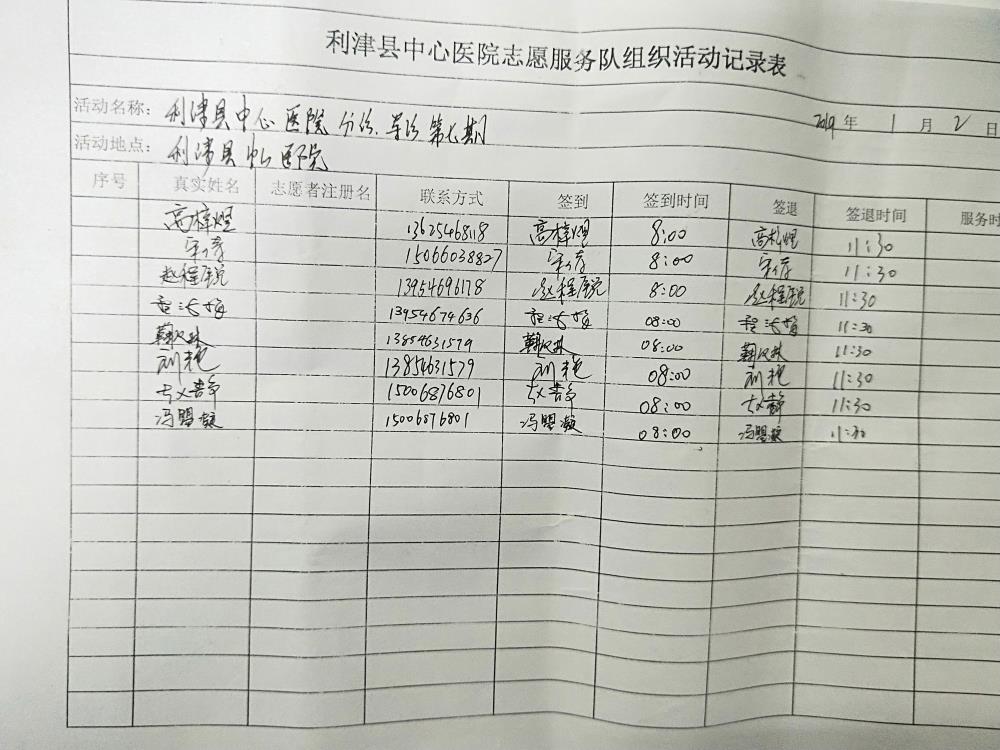 利津县中心医院志愿服务队组织活动记录表
活动名称： 利津县中心医院 分诊、导诊 第七期 2019 年 1 月 2 日
活动地点： 利津县中心医院
序号 真实姓名 志愿者注册名 联系方式 签到 签到时间 签退 签退时间 服务时
高梓煜 13625468118 高梓煜 8:00 高梓煜 11:30
宋倩 15066038827 宋倩 8:00 宋倩 11:30
赵程 13954696178 赵程 8:00 赵程 11:30
13954674636 08:00 11:30
13854631579 08:00 11:30
刘艳 13854631579 刘艳 08:00 刘艳 11:30
15006876801 08:00 11:30
冯盟凝 15006876801 冯盟凝 08:00 冯盟凝 11:30